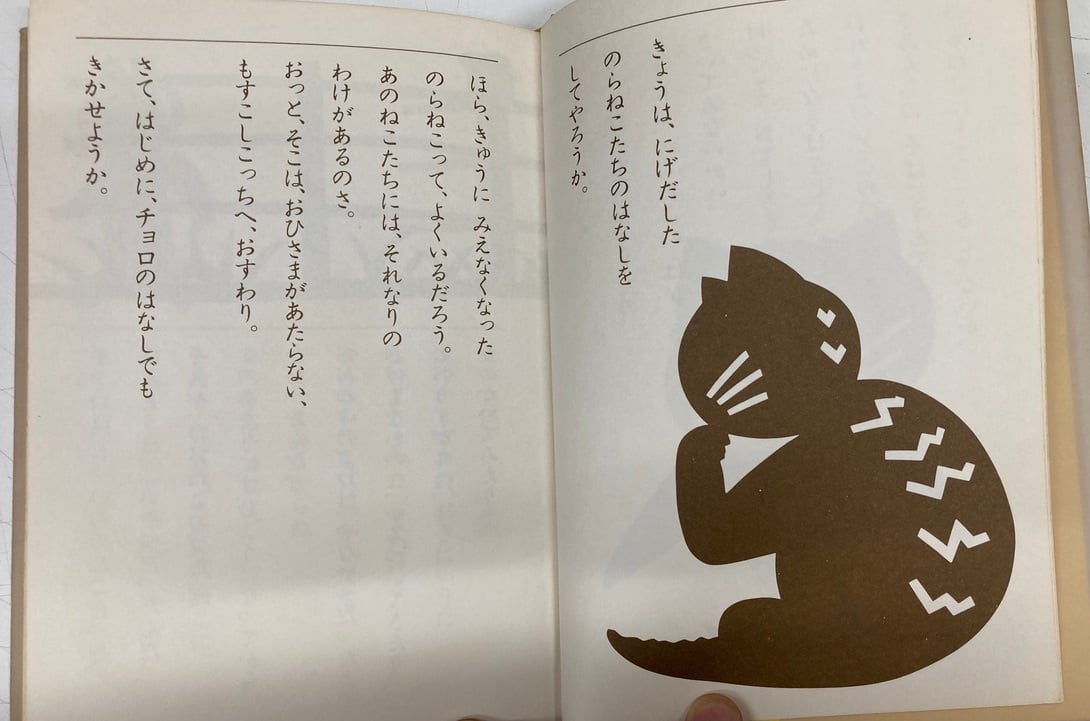 きょうは、にげだした
のらねこたちのはなしを
してやろうか。
ほら、きゅうに みえなくなった
のらねこって、よくいるだろう。
あのねこたちには、それなりの
わけがあるのさ。
おっと、そこは、おひさまがあたらない、
もすこしこっちへ、おすわり。
さて、はじめに、チョロのはなしでも
きかせようか。